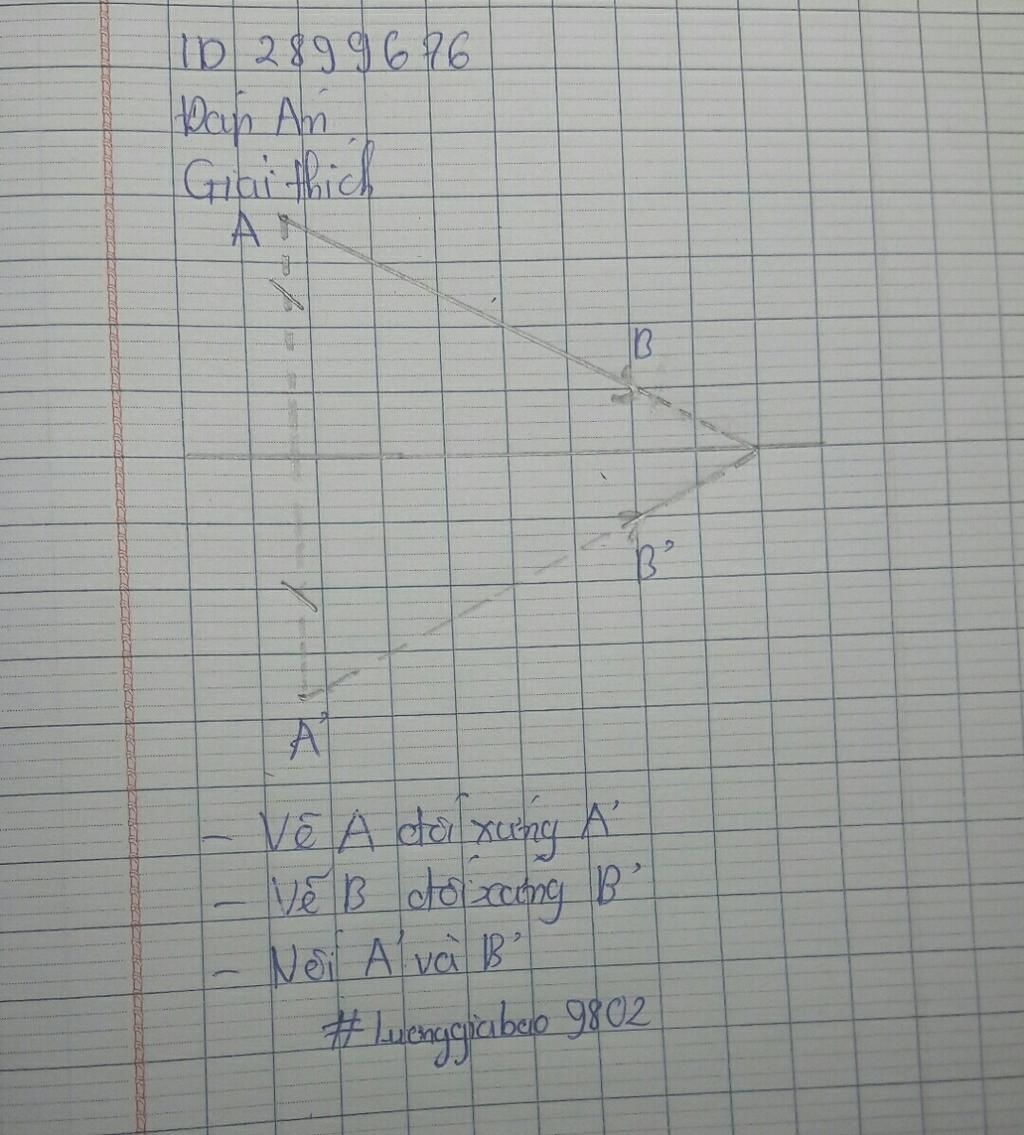 ID 2899676
Đáp Án
Giải thích
A
B
B'
A'
- Vẽ A đối xứng A'
- Vẽ B đối xứng B'
- Nối A' và B'
#luonggiabao9802